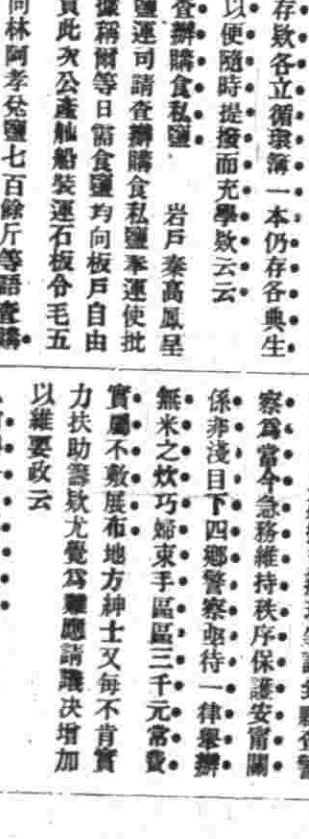 存欵各立循環簿一本仍存各典生
以便隨時提撥而充學欵云云
查辦購食私鹽 岩戶秦高鳳呈
鹽運司請查辦購食私鹽奉運使批
據稱爾等日需食鹽均向板戶自由
此次公產舢船裝運石板令毛五
向林阿孝兌鹽七百餘斤等語查購
察爲當今急務維持秩序保護安甯關
係非淺目下四鄉警察亟待一律舉辦
無米之炊巧婦束手區區三千元常費
實屬不敷展布地方紳士又每不肯實
力扶助籌欵尤覺爲難應請議决增加
以維要政云